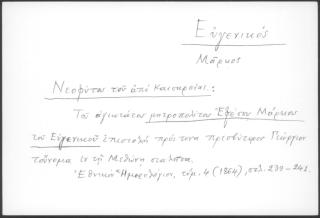 Εὐγενικός
Μᾶρκος
Νεοφύτου τοῦ ἀπὸ Καισαρείας:
Τοῦ ἁγιωτάτου μητροπολίτου Ἐφέσου Μάρκου
τοῦ Εὐγενικοῦ ἐπιστολὴ πρός τινα πρεσβύτερον Γεώργιον
τοὔνομα ἐν τῇ Μεθώνῃ
Ἐθνικὸν Ἡμερολόγιον, τόμ. 4 (1864), σελ. 239-242.